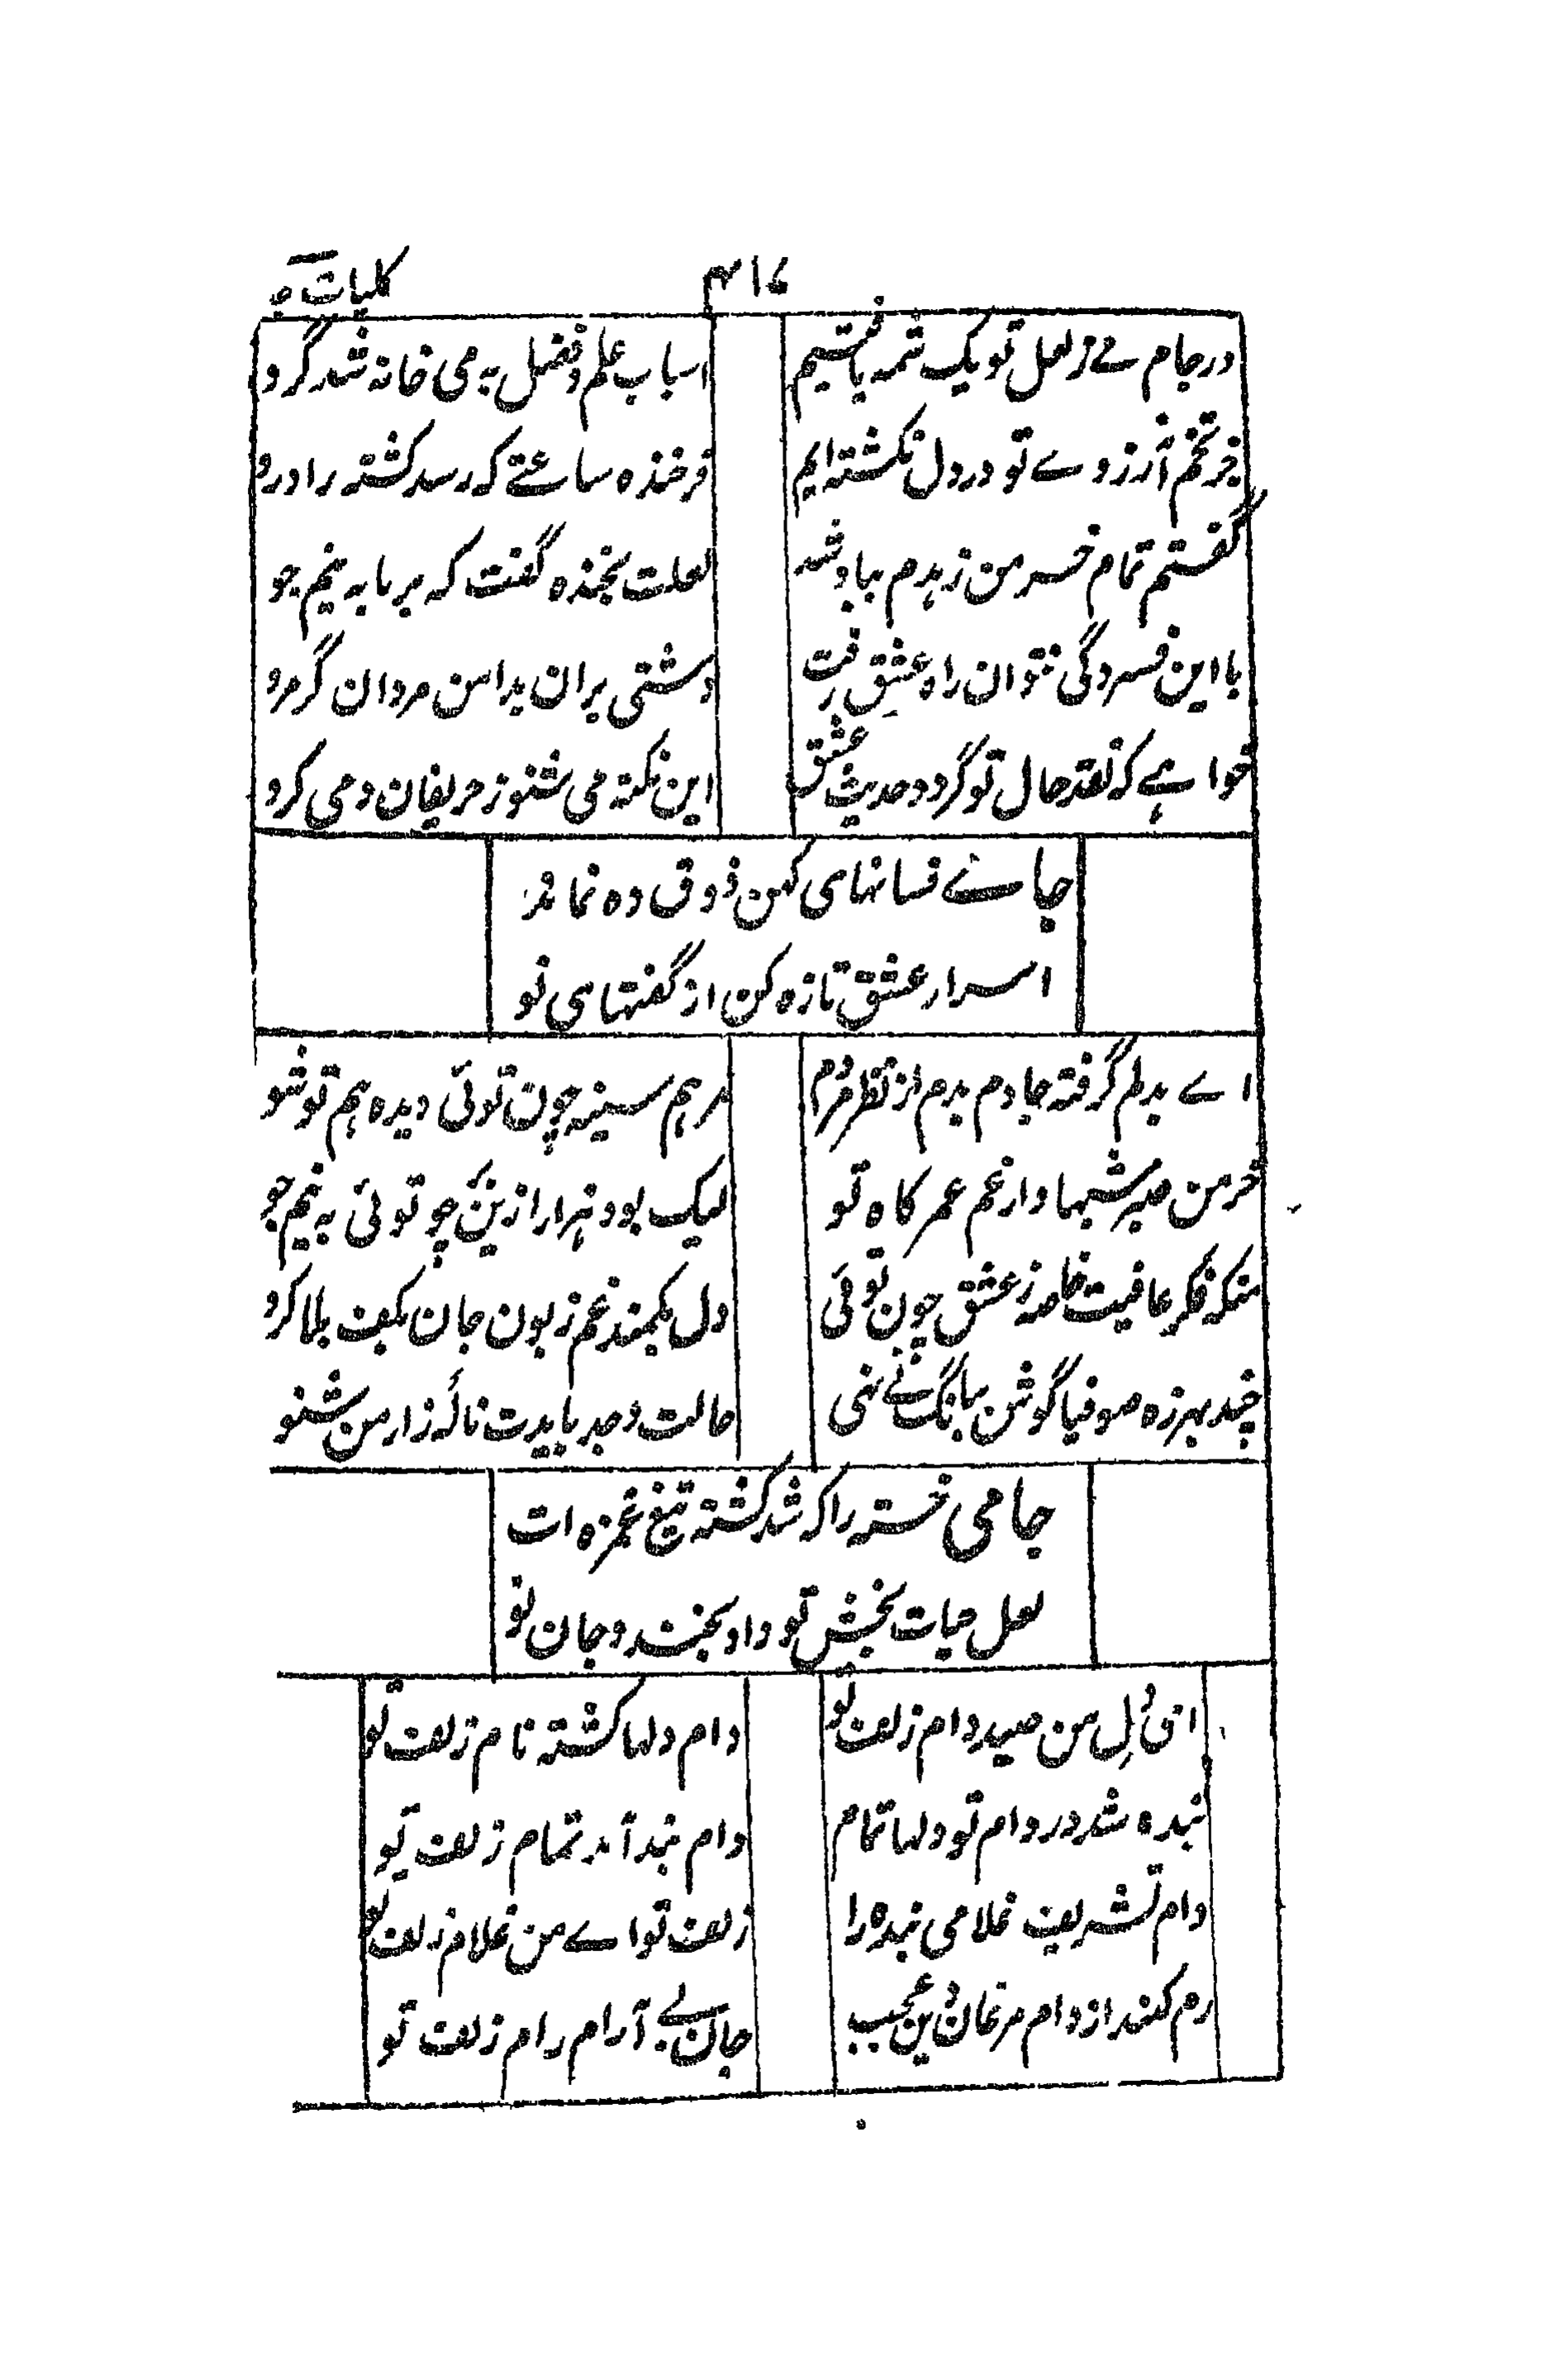 کلیات ج
۴۱۷
در جام مے ز لعل تو یک شمه یافتیم
اسباب علم و فضل به می خانه شد گرو
جز تخم آرزوے تو در دل نکشته ایم
فرخنده ساعتے که رسد کشته را درو
گفتم تمام خرمن زهدم بباد شد
لعلت بخنده گفت که بر ما به نیم جو
با این فسردگی نتوان راه عشق رفت
دستی بران بدامن مردان گرم رو
خواهے که نقد حال تو گردد حدیث عشق
این نکته می شنو ز حریفان و می گرو
جامے فسانهای کهن ذوق ده نماند
اسرار عشق تازه کن از گفتهای نو
اے بدلم گرفته جا دم بدم از نظر مرو
مرهم سینه چون توئی دیده هم تو شو
خرمن صبر شد بها دار غم عمر کاه تو
لیک بود هزار ازین چو توئی به نیم جو
منکه فکر عافیت خاصه ز عشق چون توئی
دل بکمند غم زبون جان بکف بلا گرو
چند بهرزه صوفیا گوش ببانگ نے نهی
حالت وجد بایدت نالۀ زار من شنو
جامی خسته را که شد کشته تیغ غمزه ات
لعل حیات بخش تو داد بخنده جان نو
ای دل من صید دام زلف تو
دام دلها گشته نام زلف تو
بنده شد در دام تو دلها تمام
دام بند آمد تمام زلف تو
دام تشریف غلامی بنده را
زلف تو اے من غلام زلف تو
رم کنند از دام مرغان وین عجب
جان بے آرام رام زلف تو